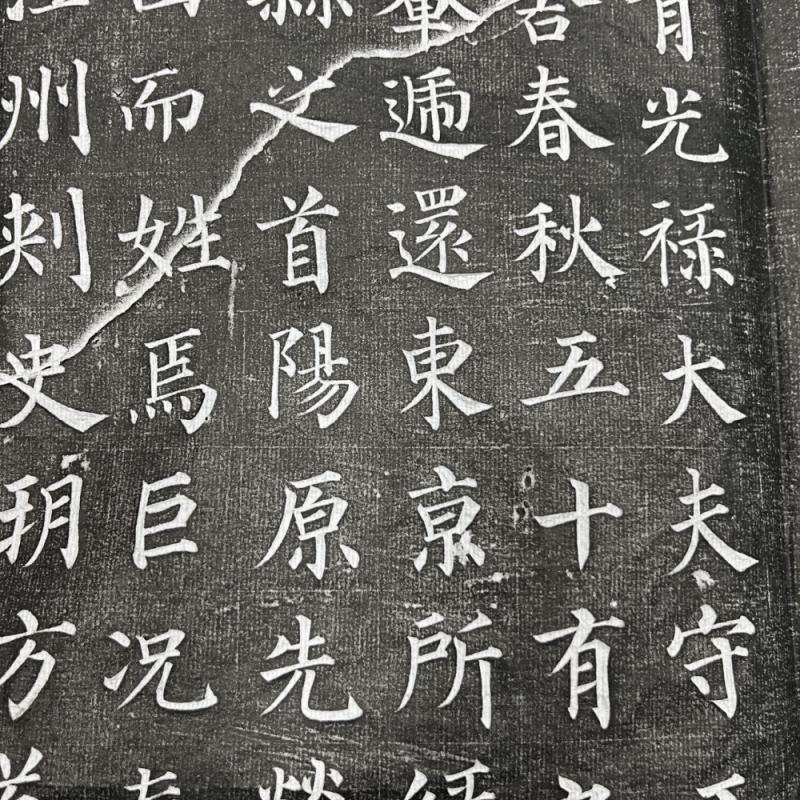 光禄大夫守
春秋五十有
遞還東京所
文首陽原先
而姓焉巨况
州刾史玥方